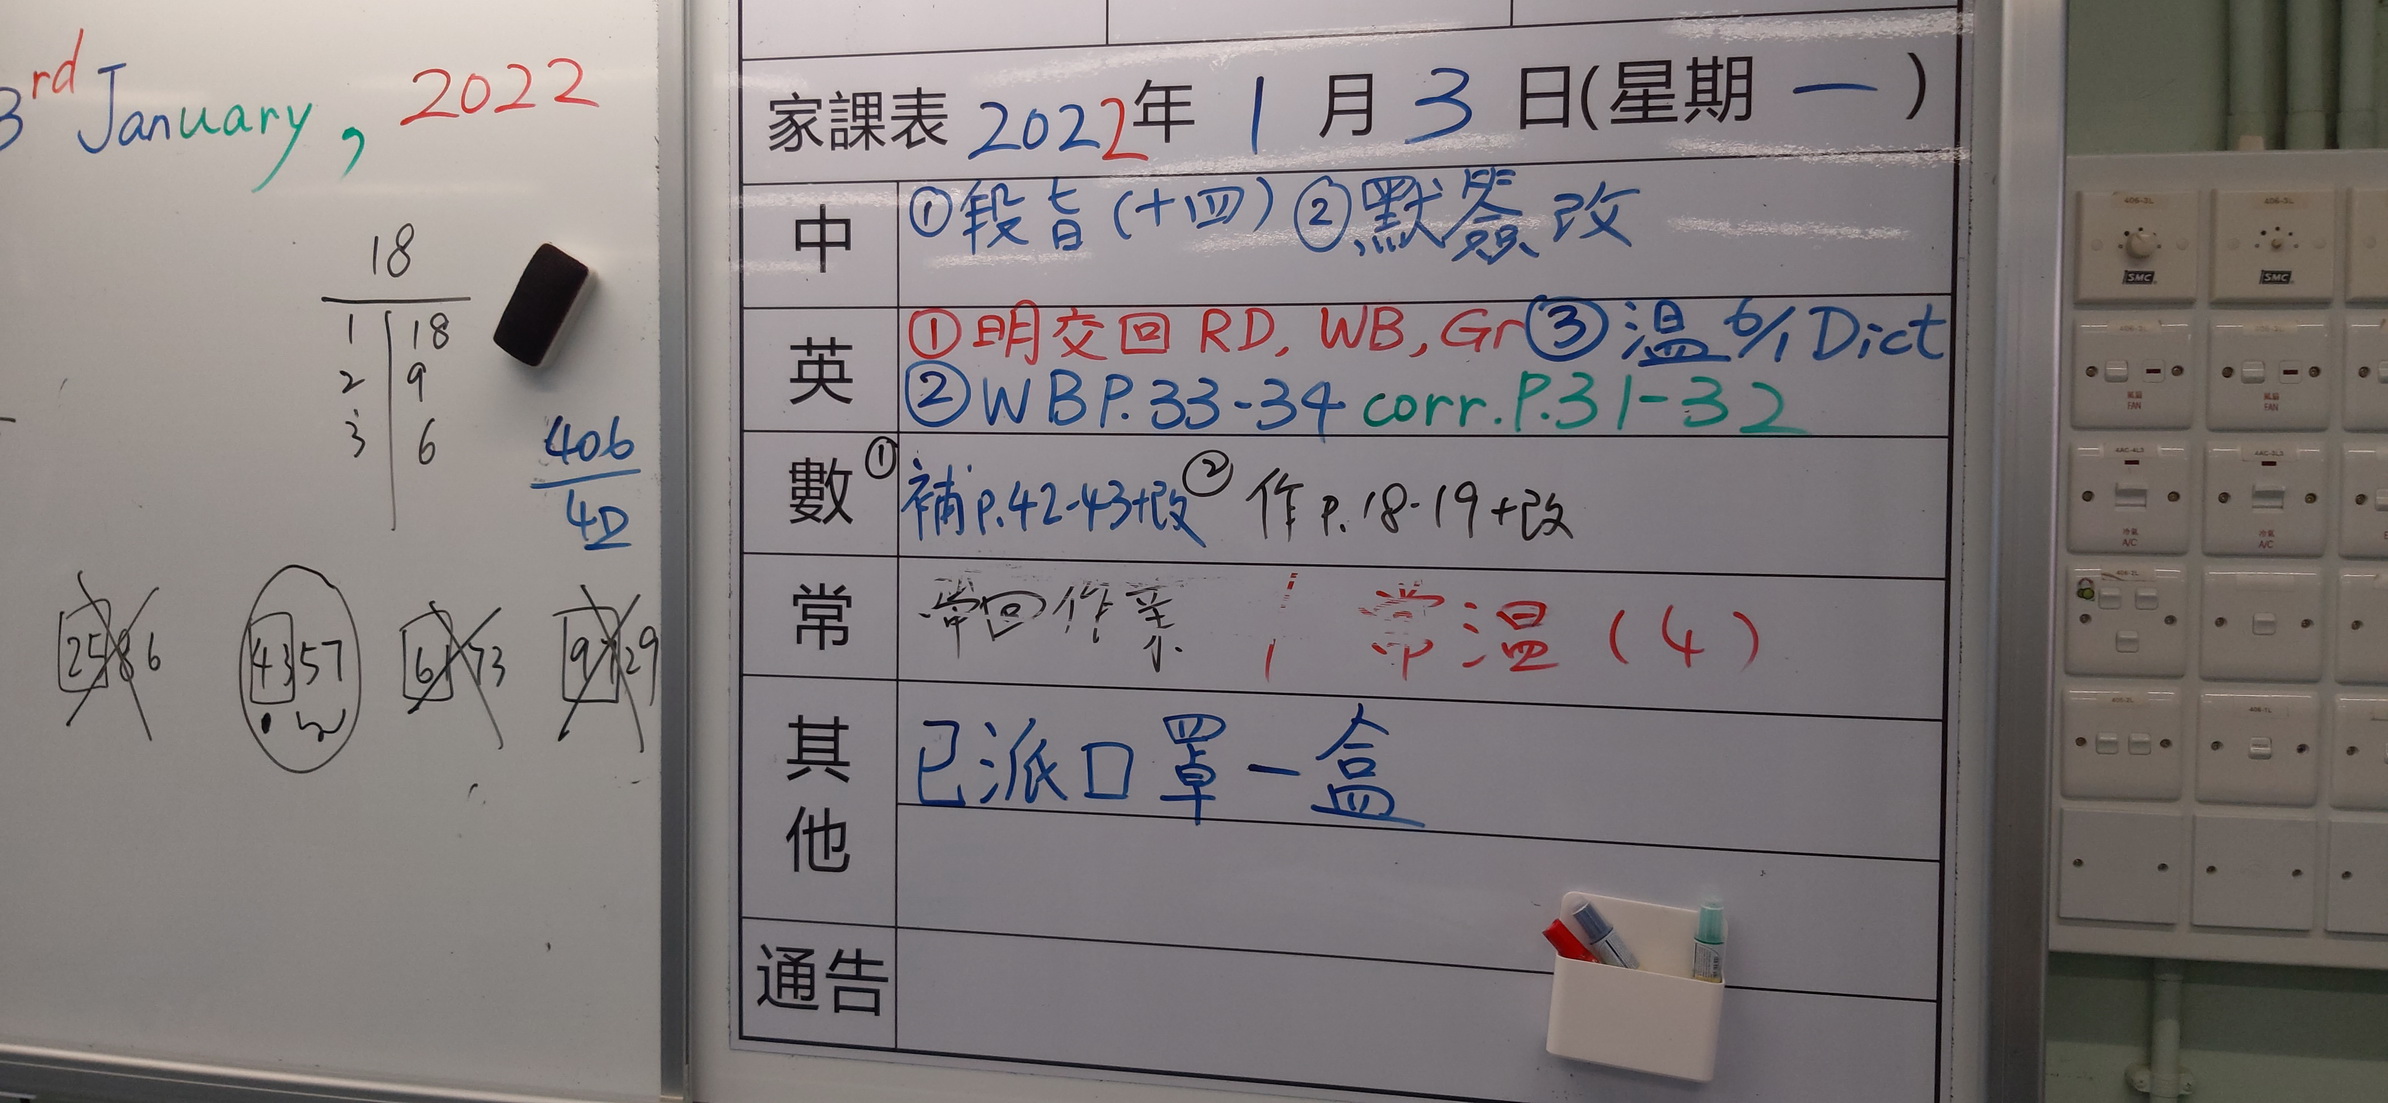 3rd January, 2022
18
1 18
2 9
3 6
406
4D
2586
4357
6173
9729
家課表 2022年 1 月 3 日(星期 一 )
中
①段旨(十四) ②默簽改
英
①明交回 RD, WB, Gr ③温 6/1 Dict
②WB P.33-34 corr. P.31-32
數
①補P.42-43+改 ②作P.18-19+改
常
常回作業 常温(4)
其他
已派口罩一盒
通告
SMC
SMC
氣扇
FAN
氣扇
FAN
冷氣
A/C
冷氣
A/C